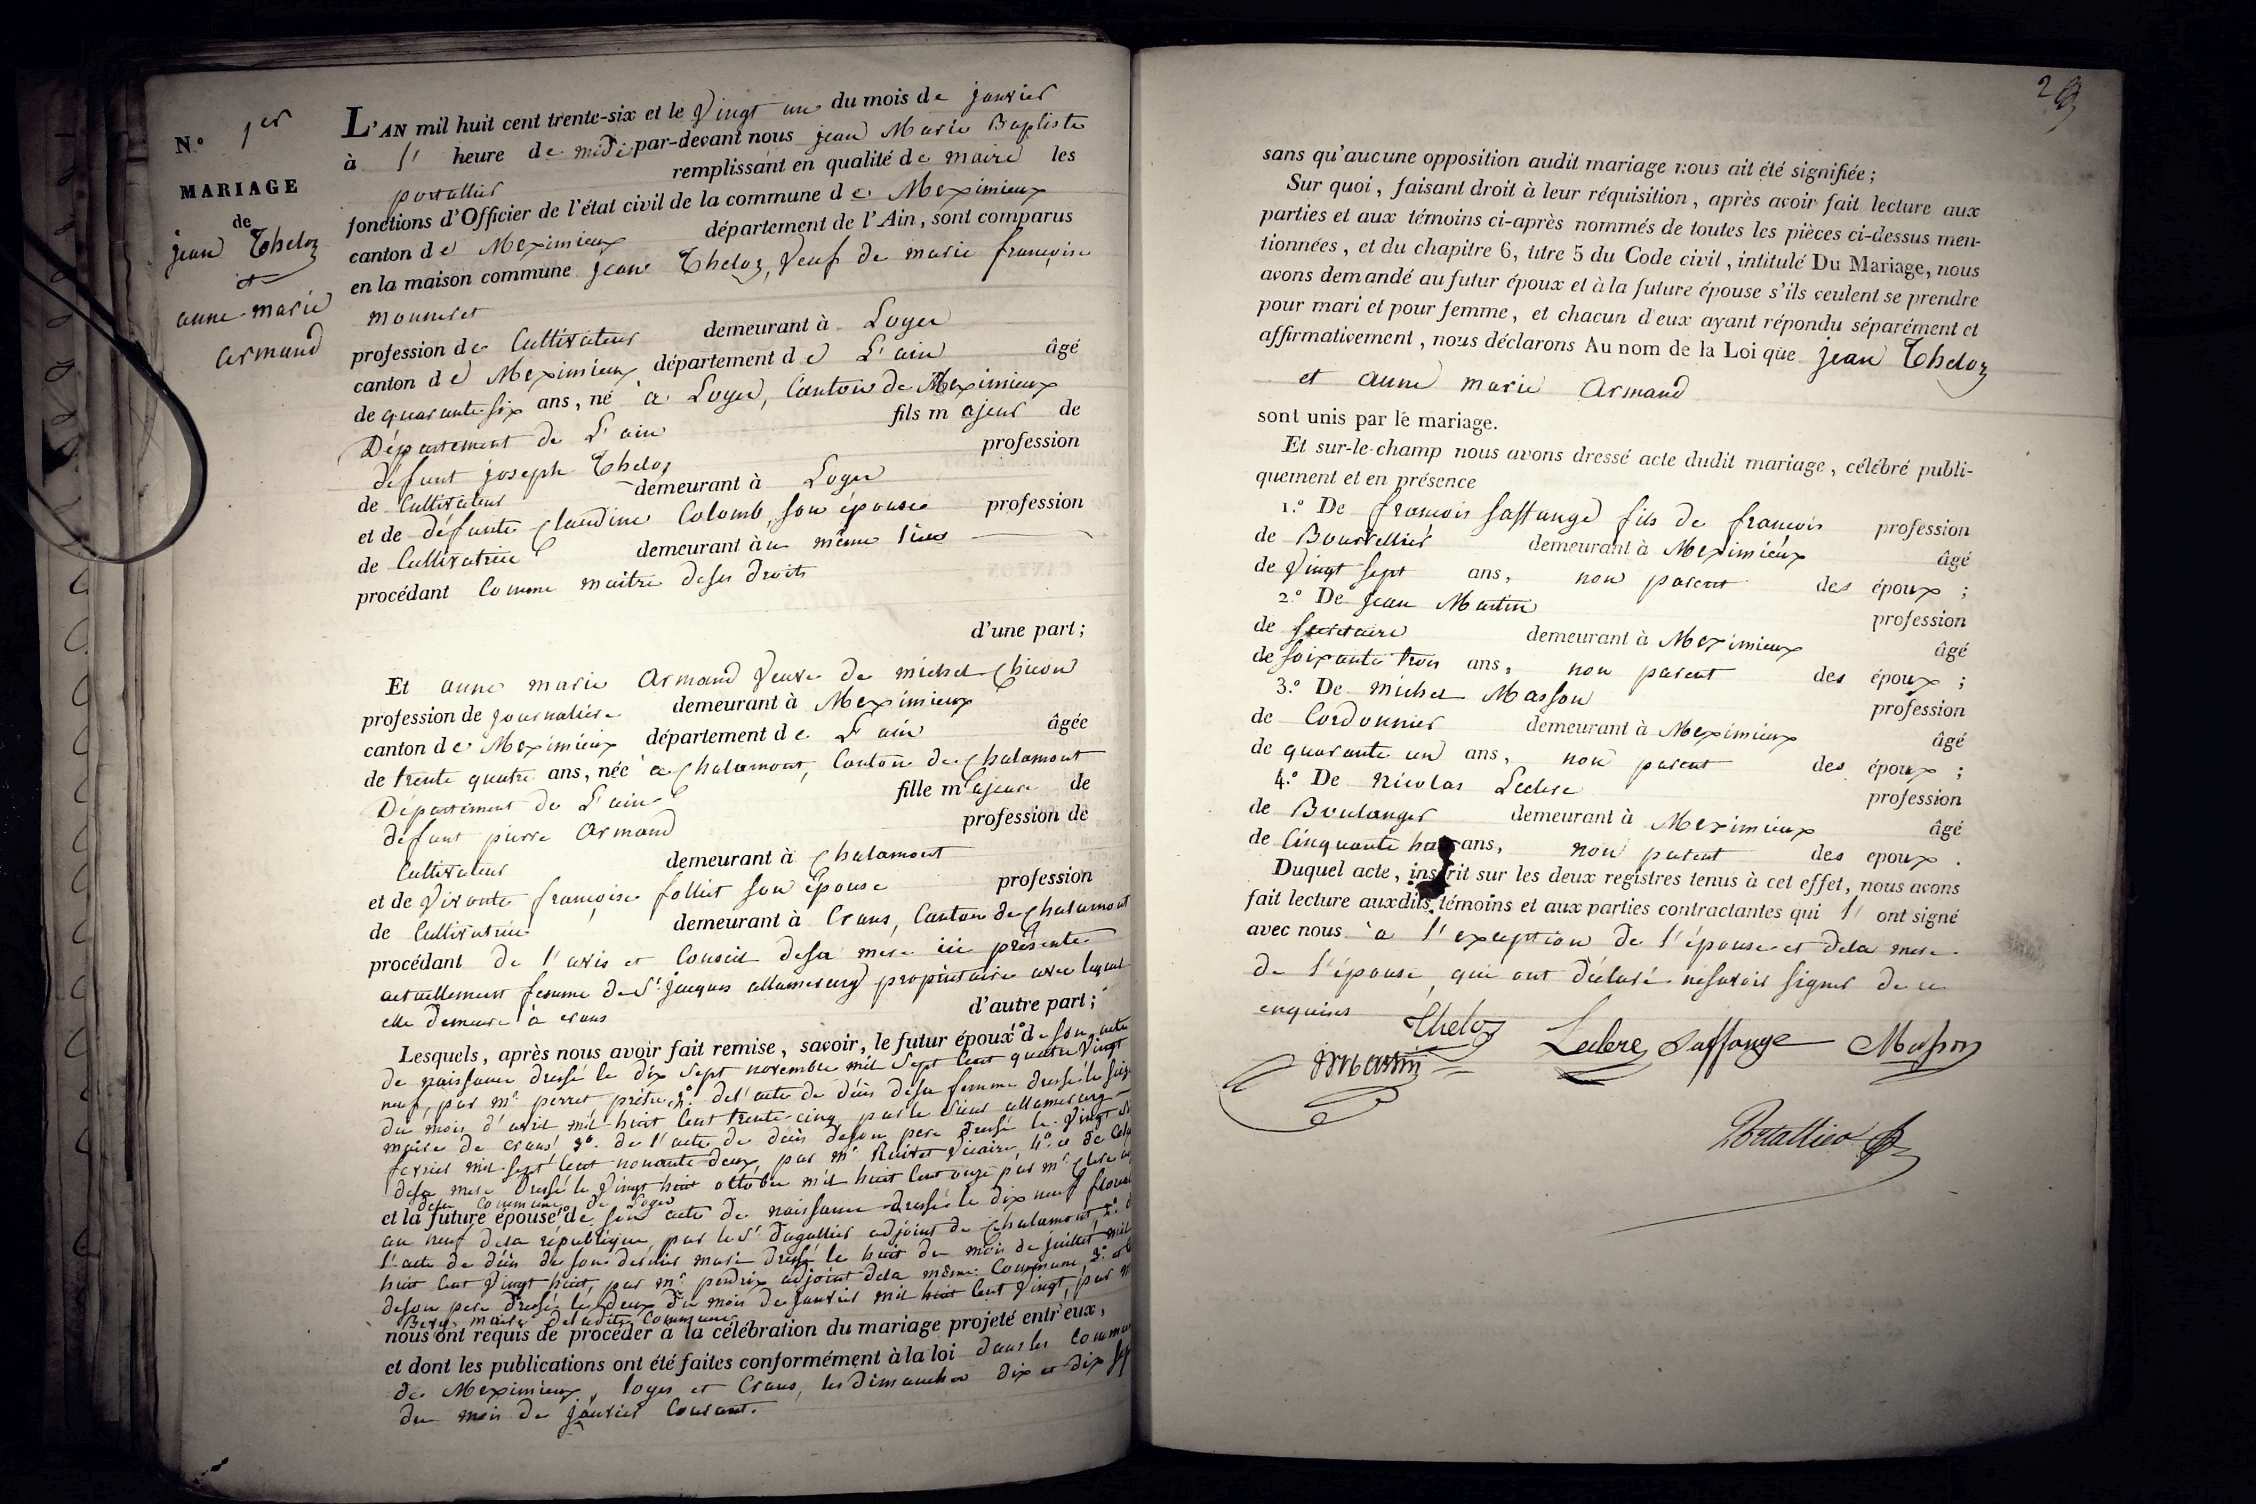 N.º 1er
MARIAGE
de
jean Theloz
et
anne marie
armand
L'AN mil huit cent trente-six et le Vingt un du mois de janvier
à l' heure de midi par-devant nous jean Marie Baptiste
portallier remplissant en qualité de maire les
fonctions d'Officier de l'état civil de la commune de Meximieux
canton de Meximieux département de l'Ain, sont comparus
en la maison commune jean Theloz, Veuf de marie françoise
mouneret
profession de Cultivateur demeurant à Loyer
canton de Meximieux département de L'ain âgé
de quarante six ans, né à Loyer, Canton de Meximieux
Département de L'ain fils majeur de
défunt joseph Theloz profession
de Cultivateur demeurant à Loyer
et de défunte Claudine Colomb, son épouse profession
de Cultivatrice demeurant au même lieu
procédant Comme maitre deses droits
d'une part;
Et anne marie armand Veuve de michel Chicon
profession de journaliere demeurant à Meximieux
canton de Meximieux département de L'ain âgée
de trente quatre ans, née à Chalamont, Canton de Chalamont
Département de L'ain fille majeure de
defunt pierre armand profession de
Cultivateur demeurant à Chalamont
et de Vivante françoise folliet son Epouse profession
de Cultivatrice demeurant à Crans, Canton de Chalamont
procédant de l'avis et Conseil desa mere ici présente
actuellement femme de Sr jacques allamercery propriétaire avec lequel
elle demeure à crans d'autre part;
Lesquels, après nous avoir fait remise, savoir, le futur époux 1º de son acte
de naissance dressé le dix sept novembre mil sept cent quatre Vingt
neuf, par mr perret prêtre, 2º del'acte de décès desa femme dressé le seize
du mois d'avril mil huit Cent trente-cinq par le sieur allamercery
maire de crans, 3º de l'acte de décès deson pere dressé le Vingt
fevrier mil sept Cent nonante deux par mr Ruivet Vicaire, 4º et de celui
desa mere dressé le Vingt huit octobre mil huit Cent onze par mr Clerc
dela Commune de Loyer
et la future épouse 1º de son acte de naissance dressé le dix neuf floréal
an neuf dela république par le Sr Dagallier adjoint de Chalamont, 2º de
l'acte de décès de son dernier mari dressé le huit du mois de juillet mil
huit Cent Vingt huit, par mr perdrix adjoint dela même Commune, 3º et
deson pere dressé le deux du mois de janvier mil huit Cent Vingt, par mr
maire deladite Commune
nous ont requis de procéder à la célébration du mariage projeté entr'eux,
et dont les publications ont été faites conformément à la loi dans les Commu
de Meximieux, loyes et Crans, les dimanches dix et dix sep
du mois de janvier Courant.
29
sans qu'aucune opposition audit mariage nous ait été signifiée;
Sur quoi, faisant droit à leur réquisition, après avoir fait lecture aux
parties et aux témoins ci-après nommés de toutes les pièces ci-dessus men-
tionnées, et du chapitre 6, titre 5 du Code civil, intitulé Du Mariage, nous
avons demandé au futur époux et à la future épouse s'ils veulent se prendre
pour mari et pour femme, et chacun d'eux ayant répondu séparément et
affirmativement, nous déclarons Au nom de la Loi que jean Theloz
et anne marie armand
sont unis par le mariage.
Et sur-le-champ nous avons dressé acte dudit mariage, célébré publi-
quement et en présence
1.º De françois Saffange fils de françois profession
de Bourrellier demeurant à Meximieux âgé
de Vingt sept ans, non parent des époux;
2.º De jean Martin profession
de secretaire demeurant à Meximieux âgé
de soixante trois ans, non parent des époux;
3.º De michel Masson profession
de Cordonnier demeurant à Meximieux âgé
de quarante un ans, non parent des époux;
4.º De Nicolas Leclerc profession
de Boulanger demeurant à Meximieux âgé
de Cinquante ans, non parent des epoux.
Duquel acte, inscrit sur les deux registres tenus à cet effet, nous avons
fait lecture auxdits témoins et aux parties contractantes qui l' ont signé
avec nous à l'exception de l'épouse et dela mere
de l'épouse, qui ont déclaré nesavoir signer de ce
enquises
Theloz Leclerc Saffange Masson
jmartin
Portallier